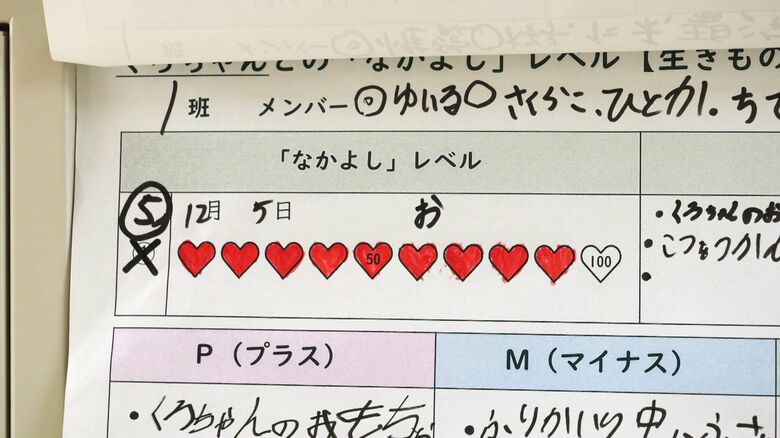 くろちゃんとの「なかよし」レベル【生きもの
1班 メンバー◎ゆいる○さくらこ、ひとか。ち
「なかよし」レベル
5 12月 5日 お
50 100
・くろちゃんのお
・こつをつかん
P（プラス） M（マイナス）
・くろちゃんのおもちゃ ・ふりかいり中